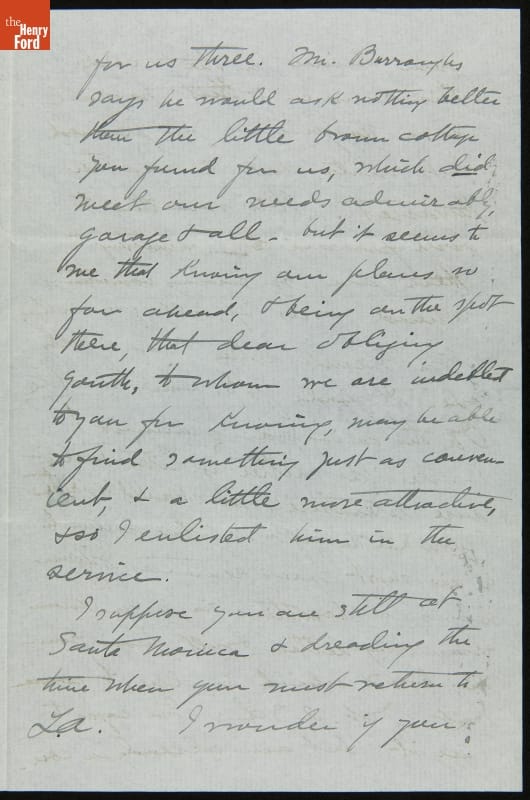 the
Henry
Ford
for us three. Mr. Burroughs
says he would ask nothing better
than the little brown cottage
you found for us, which did
meet our needs admirably,
garage & all - but it seems to
me that knowing our plans so
far ahead, & being on the spot
there, that dear obliging
youth, to whom we are indebted
to you for knowing, may be able
to find something just as conven-
ient, & a little more attractive,
& so I enlisted him in the
service.
I suppose you are still at
Santa Monica & dreading the
time when you must return to
L.A. I wonder if you